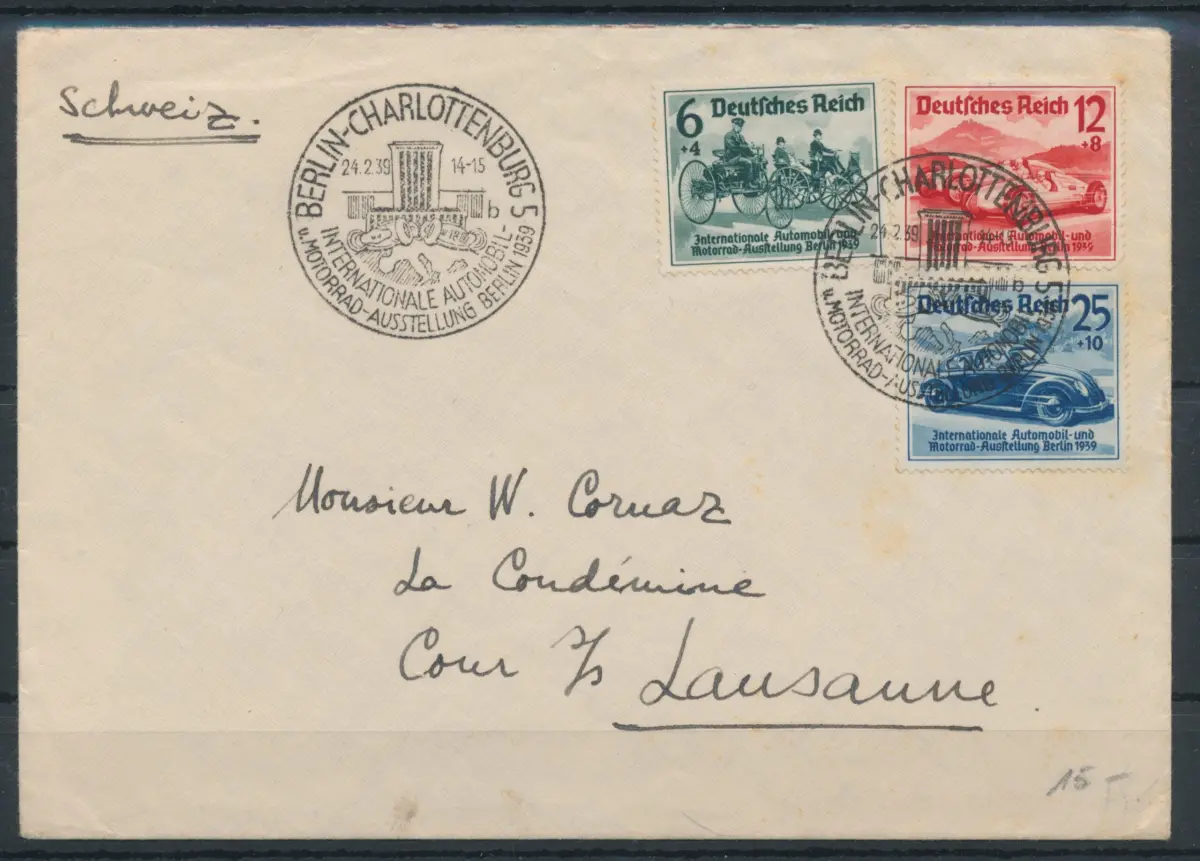 Schweiz.
BERLIN-CHARLOTTENBURG 5
24.2.39 14-15
b
INTERNATIONALE AUTOMOBIL-
u. MOTORRAD-AUSSTELLUNG BERLIN 1939
6 Deutsches Reich
+4
Internationale Automobil-und
Motorrad-Ausstellung Berlin 1939
Deutsches Reich 12
+8
Internationale Automobil-und
Motorrad-Ausstellung Berlin 1939
BERLIN-CHARLOTTENBURG 5
24.2.39 14-
b
INTERNATIONALE AUTOMOBIL-
u. MOTORRAD-AUSSTELLUNG BERLIN
Deutsches Reich 25
+10
Internationale Automobil-und
Motorrad-Ausstellung Berlin 1939
Monsieur W. Cornaz
La Condémine
Cour s/ Lausanne.
15 -